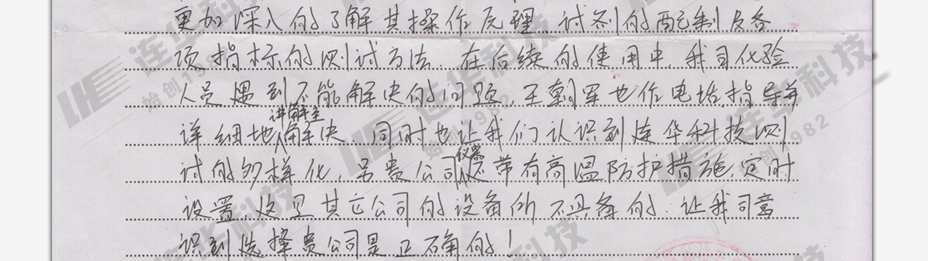 更加深入的了解其操作原理、试剂的配制及各
项指标的测试方法。在后续的使用中，我司化验
人员遇到不能解决的问题，王朝军也作电话指导并
详细地讲解至解决。同时也让我们认识到连华科技测
试的多样化，另贵公司仪器还带有高温防护措施，定时
设置，这是其它公司的设备所不具备的，让我司意
识到选择贵公司是正确的！
连华科技
始创于1982